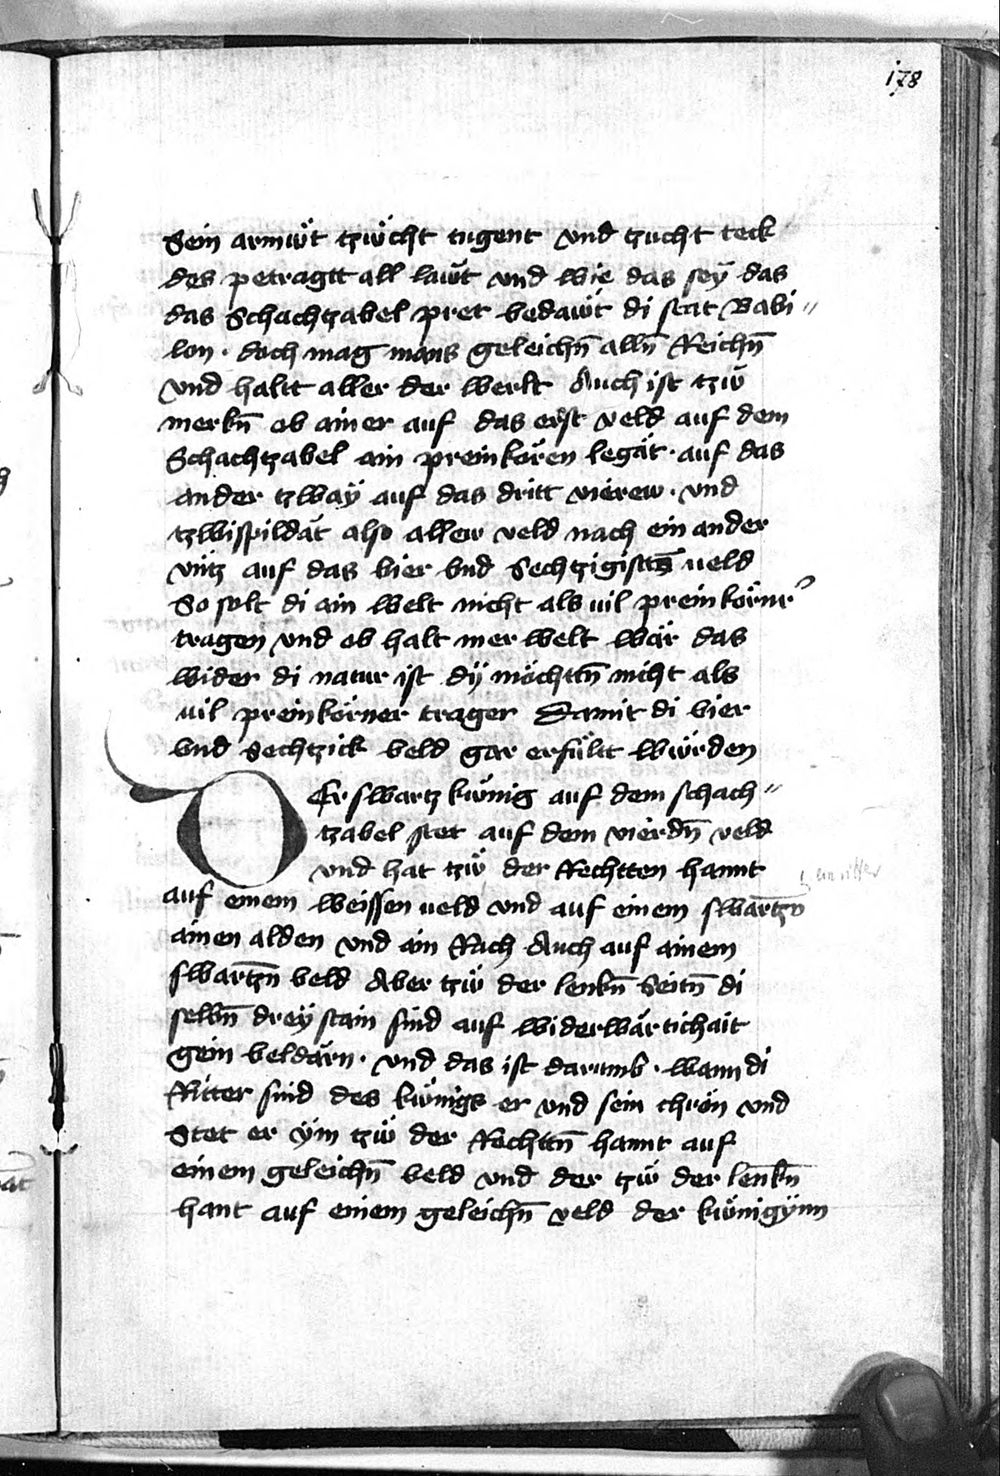 178
Sein armẅt tzẅcht tugent vnd tzucht teck
des petragtt all laẅt vnd wie das seÿ das
das Schachtzabel pret bedaẅt di stat Babi〃
lon · doch mag mans geleichn̄ alln̄ Reichn̄
vnd haltt aller der werlt Auch ist tzẅ
merkn̄ ob ainer auf das erst veld auf dem
Schachtzabel ain preinkören legät · auf das
ander tzwaÿ auf das dritt vierew · vnd
tzwispildät also allew veld nach ein ander
vntz auf das vier vnd Sechtzigistn̄ veld
So solt di ain welt nicht als vil preinkörner
tragen vnd ob halt mer welt wär das
wider di natur ist dÿ möchttn̄ nicht als
vil preinkörner trager Damit di vier
vnd Sechtzick veld gar erfültt würden
DEr swartz kẅnig auf dem schach〃
tzabel stet auf dem vierdn̄ veld
vnd hat tzẅ der Rechtten hannt
auf einem weissen veld vnd auf einem swartzn̄
ainen alden vnd ain Rach Auch auf ainem
swartzn̄ veld Aber tzẅ der lenkn̄ Seitn̄ di
selbn̄ dreÿ stain sind auf widerwärtichait
gein veldärn · vnd das ist darumb · wann di
Ritter sind des kẅnigs er vnd sein chrön vnd
Stet er ÿm tzẅ der Rechttn̄ hannt auf
einem geleichn̄ veld vnd der tzẅ der lenkn̄
hant auf einem geleichn̄ veld der kẅnigÿnn